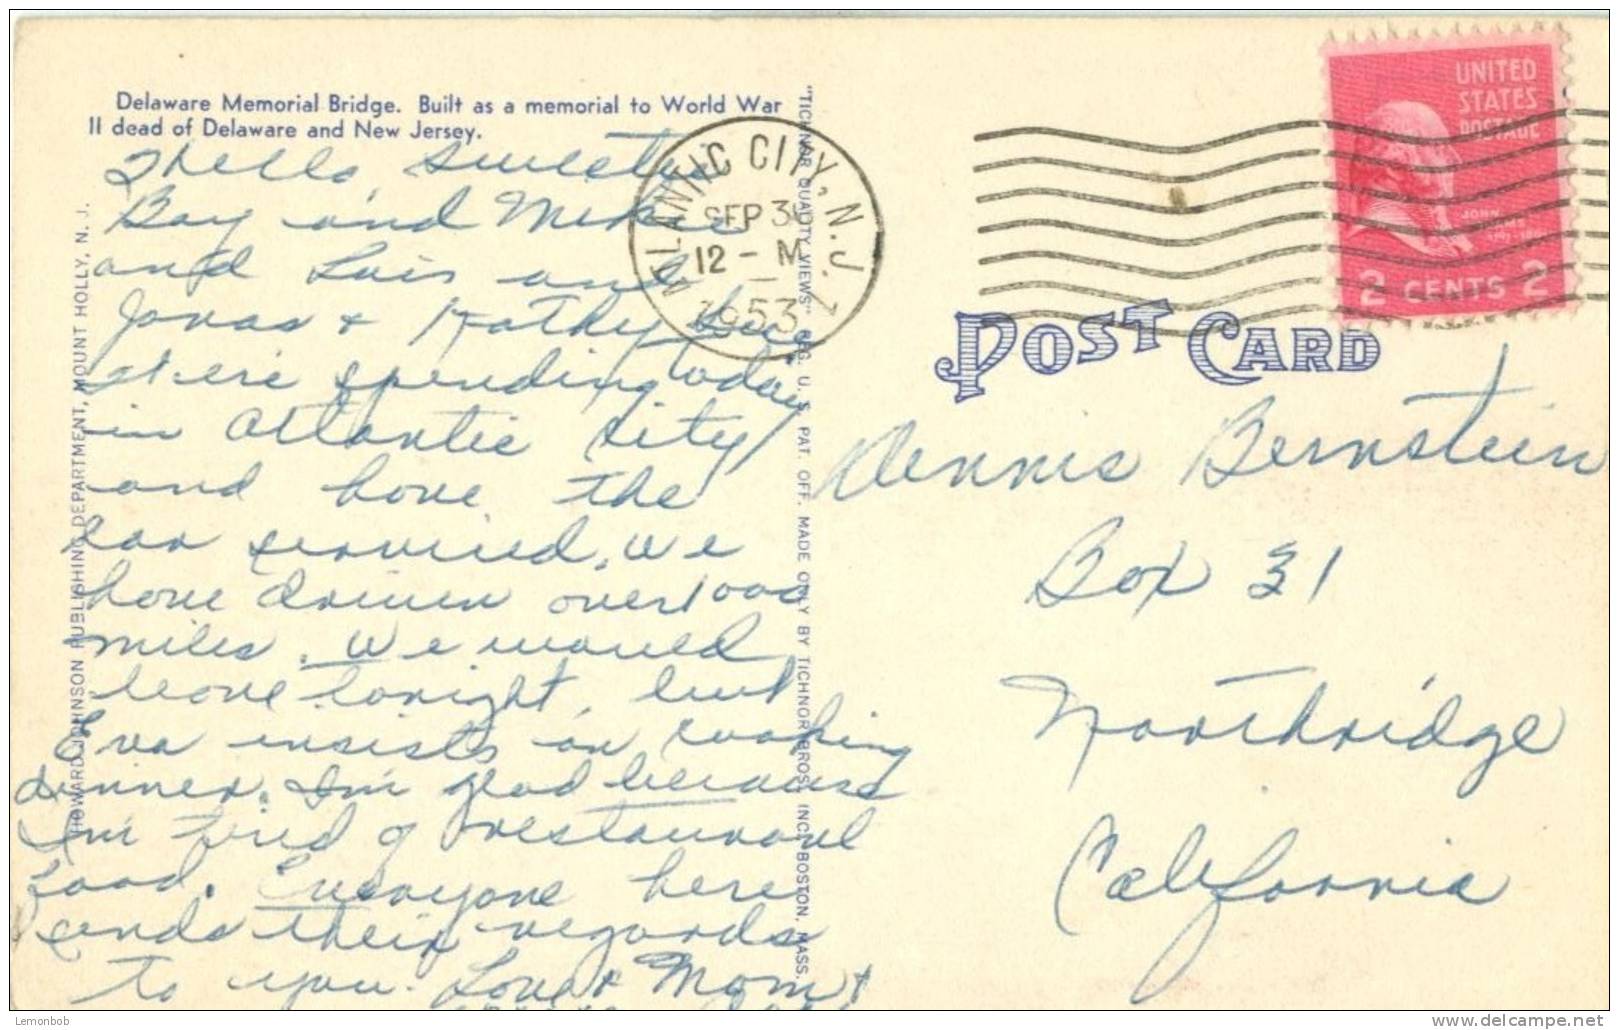 Delaware Memorial Bridge. Built as a memorial to World War
II dead of Delaware and New Jersey.
Hello, Sweetie
Boy and Mike
and Lois and
Jonas & Kathy Sue
We're spending today
in Atlantic City
and have the
car serviced. We
have driven over 1000
miles. We would
leave tonight, but
Eva insists on cooking
dinner. I'm glad because
I'm tired of restaurant
food. Everyone here
sends their regards
to you. Love Mom &
HOWARD JOHNSON PUBLISHING DEPARTMENT, MOUNT HOLLY, N. J.
"TICHNOR QUALITY VIEWS," REG. U. S. PAT. OFF. MADE ONLY BY TICHNOR BROS. INC., BOSTON, MASS.
ATLANTIC CITY, N.J. 1
SEP 30
12 - M
1953
UNITED
STATES
POSTAGE
JOHN
ADAMS
2 CENTS 2
POST CARD
Dennis Bernstein
Box 31
Northridge
California
Lemonbob
www.delcampe.net